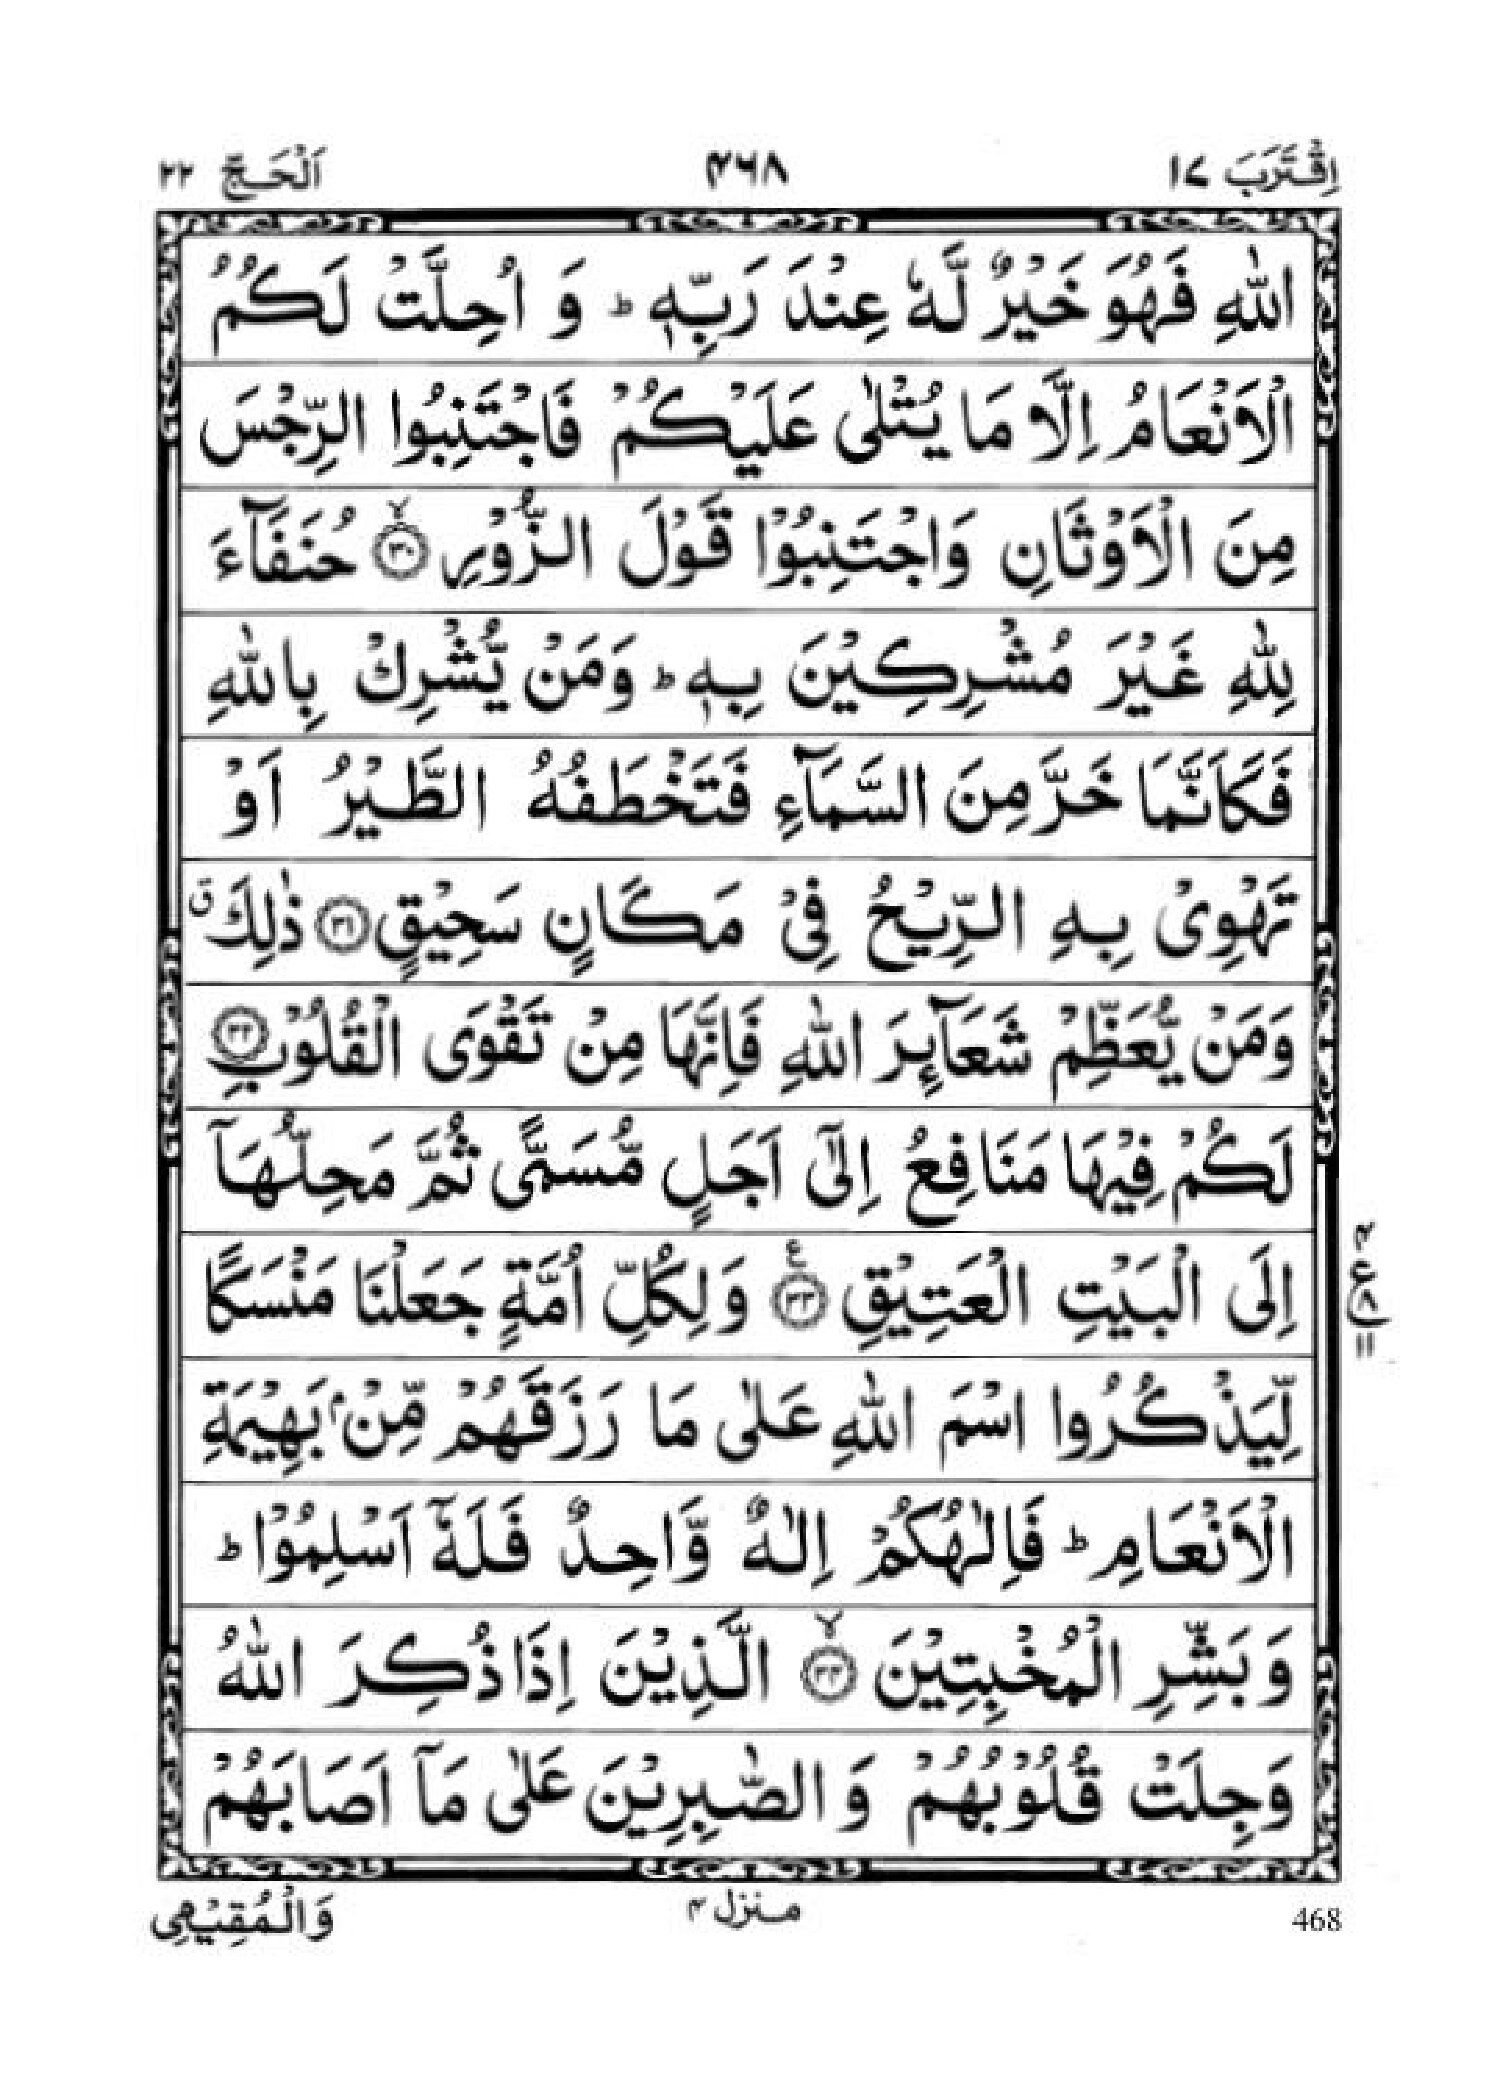 اِقْتَرَبَ ١٧ ٤٦٨ اَلْحَجّ ٢٢
اللّٰهِ فَهُوَ خَيْرٌ لَّهٗ عِنْدَ رَبِّهٖ ؕ وَ اُحِلَّتْ لَكُمُ
الْاَنْعَامُ اِلَّا مَا يُتْلٰى عَلَيْكُمْ فَاجْتَنِبُوا الرِّجْسَ
مِنَ الْاَوْثَانِ وَاجْتَنِبُوْا قَوْلَ الزُّوْرِ ۙ‏﴿٣٠﴾ حُنَفَآءَ
لِلّٰهِ غَيْرَ مُشْرِكِيْنَ بِهٖ ؕ وَمَنْ يُّشْرِكْ بِاللّٰهِ
فَكَاَنَّمَا خَرَّ مِنَ السَّمَآءِ فَتَخْطَفُهُ الطَّيْرُ اَوْ
تَهْوِىْ بِهِ الرِّيْحُ فِىْ مَكَانٍ سَحِيْقٍ ﴿٣١﴾ ذٰلِكَ ۗ
وَمَنْ يُّعَظِّمْ شَعَآئِرَ اللّٰهِ فَاِنَّهَا مِنْ تَقْوَى الْقُلُوْبِ ﴿٣٢﴾
لَكُمْ فِيْهَا مَنَافِعُ اِلٰٓى اَجَلٍ مُّسَمًّى ثُمَّ مَحِلُّهَاۤ
اِلَى الْبَيْتِ الْعَتِيْقِ ﴿٣٣﴾ ع وَلِكُلِّ اُمَّةٍ جَعَلْنَا مَنْسَكًا
٤ ع ٨ ١١
لِّيَذْكُرُوا اسْمَ اللّٰهِ عَلٰى مَا رَزَقَهُمْ مِّنْۢ بَهِيْمَةِ
الْاَنْعَامِ ؕ فَاِلٰهُكُمْ اِلٰهٌ وَّاحِدٌ فَلَهٗۤ اَسْلِمُوْا ؕ
وَبَشِّرِ الْمُخْبِتِيْنَ ۙ‏﴿٣٤﴾ الَّذِيْنَ اِذَا ذُكِرَ اللّٰهُ
وَجِلَتْ قُلُوْبُهُمْ وَ الصّٰبِرِيْنَ عَلٰى مَاۤ اَصَابَهُمْ
468 منزل ٤ وَالْمُقِيْمِى